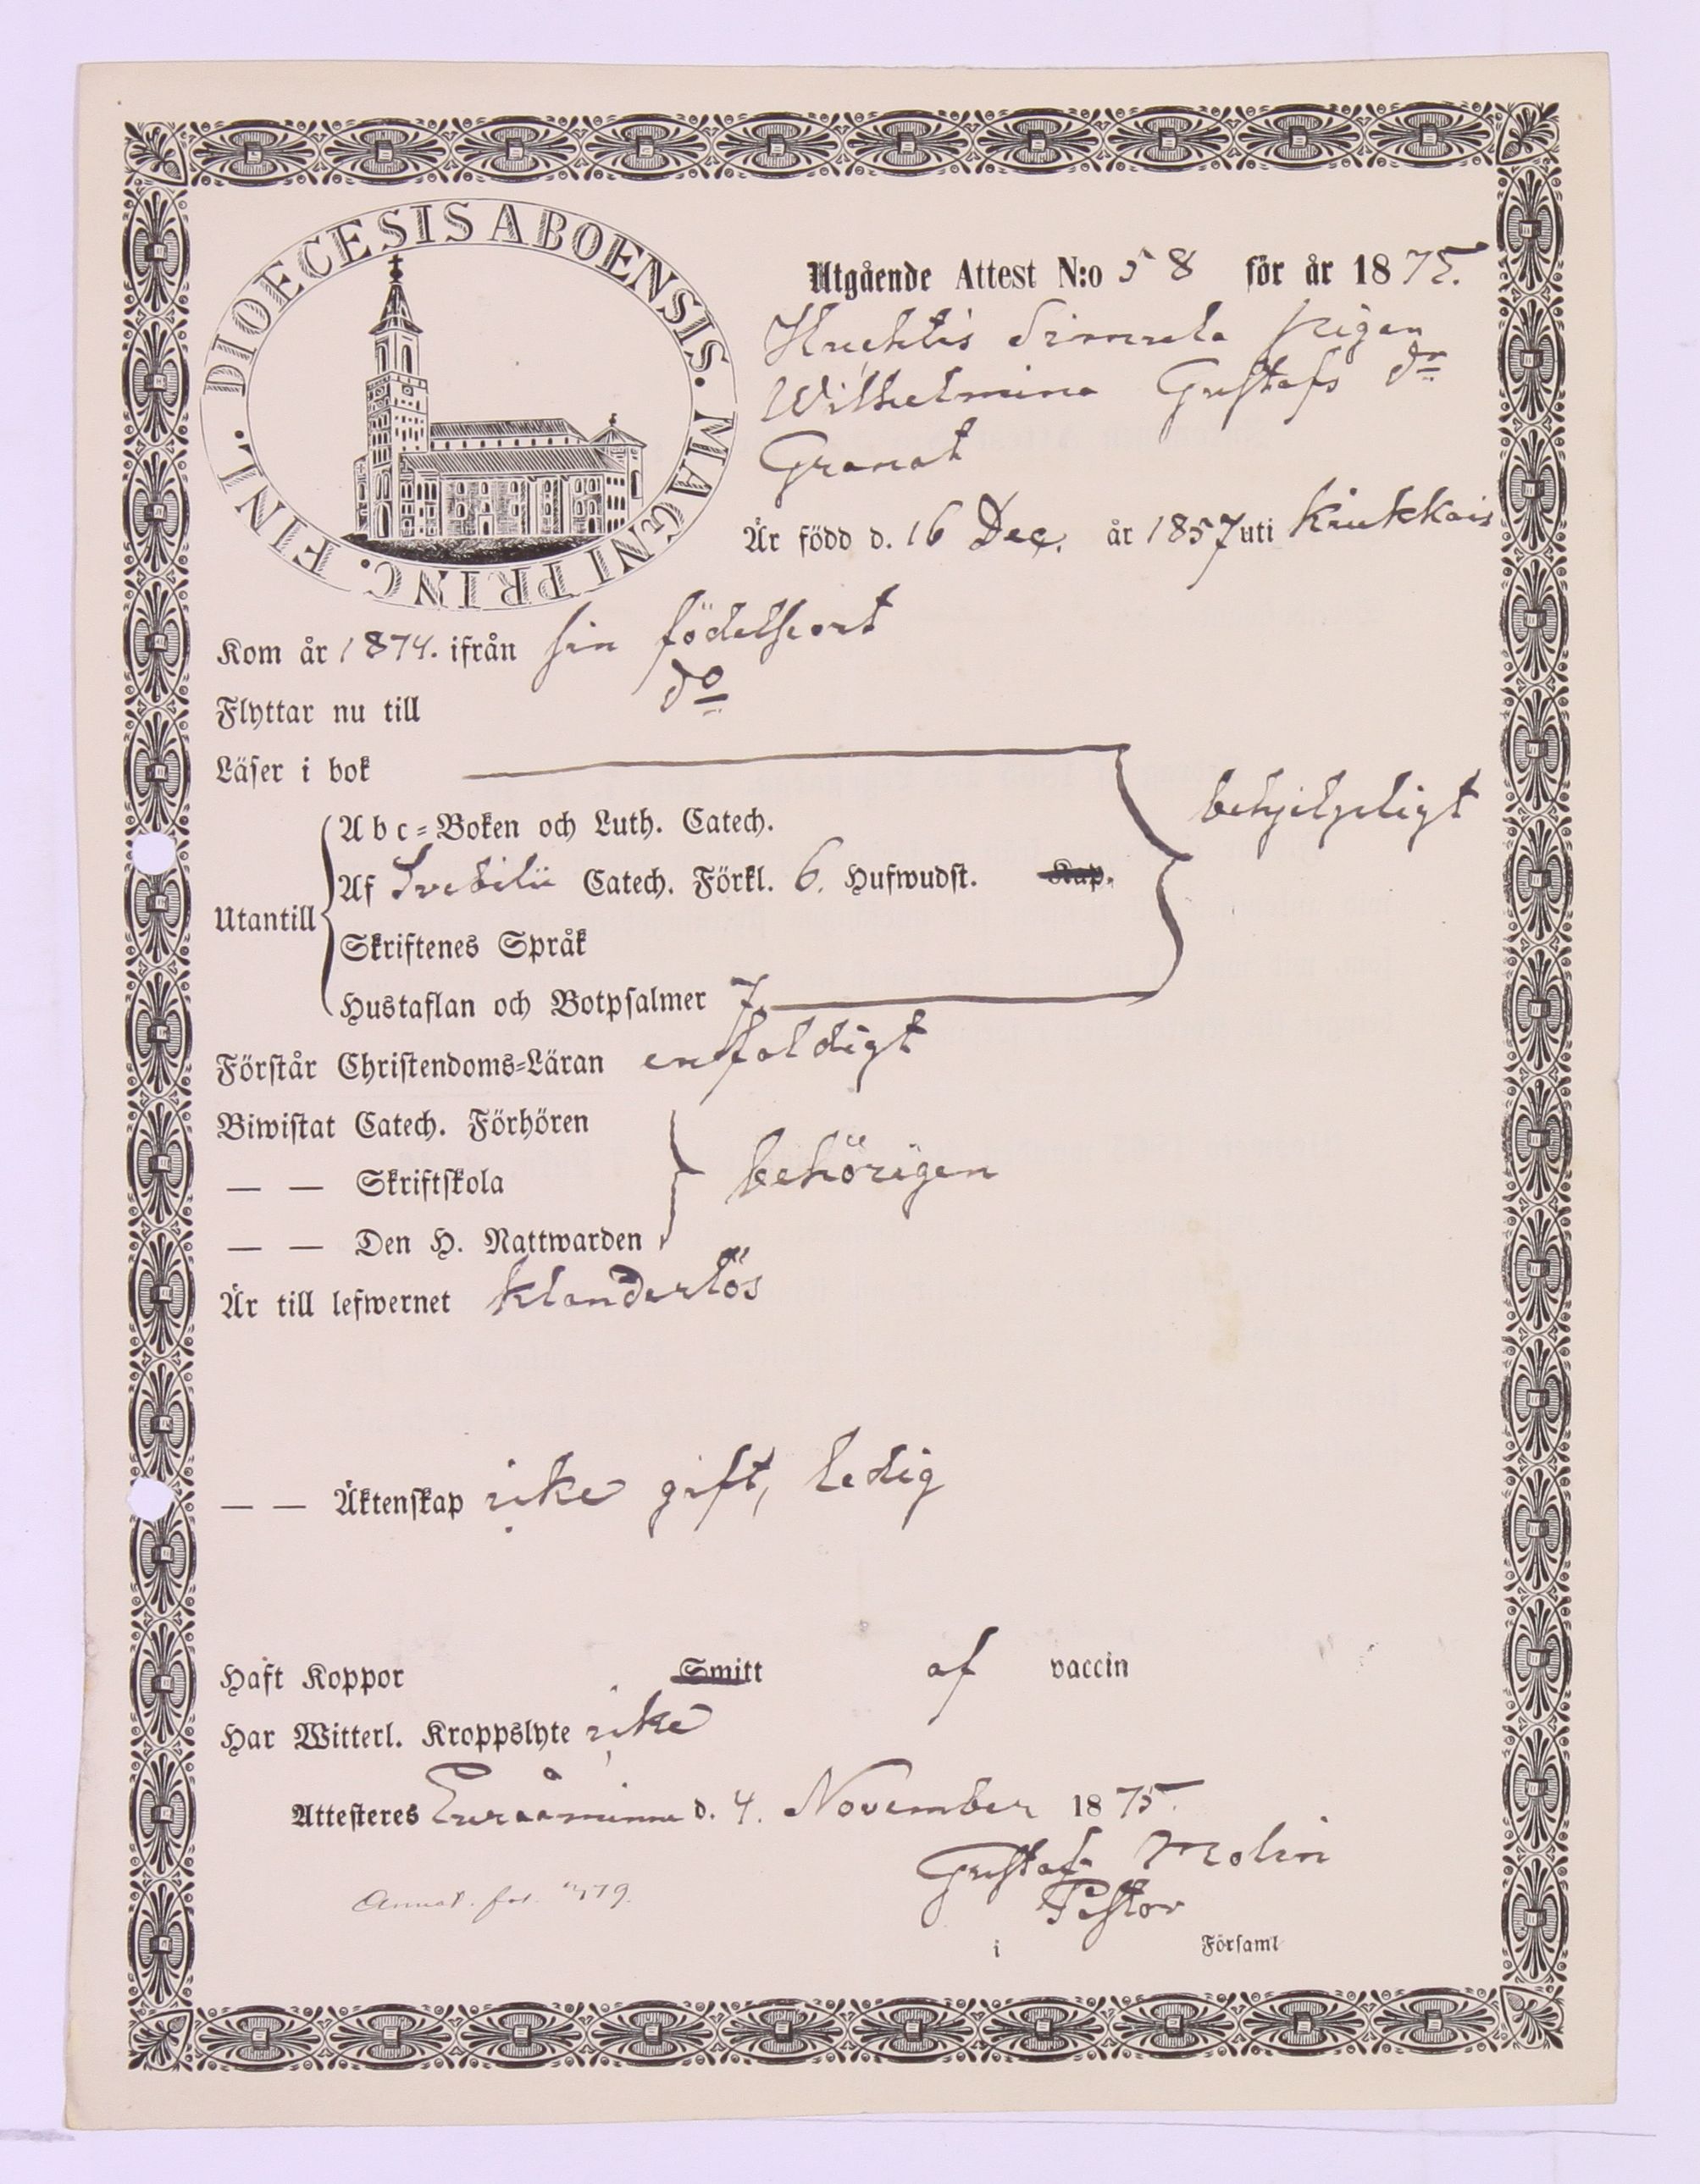 DIOECESIS ABOENSIS. MAGNI PRINC. FINL.
Utgående Attest N:o 58 för år 1875.
Huchtis Simula pigan
Wilhelmina Gustafs dr
Granat
Är född d. 16 Dec. år 1857 uti Kiukkais
Kom år 1874. ifrån sin födelseort
Flyttar nu till do
Läser i bok
behjelpeligt
Abc-Boken och Luth. Catech.
Af Svebilii Catech. Förkl. 6. Hufwudst. Kap.
Utantill
Skriftenes Språk
Hustaflan och Botpsalmer 7
Förstår Christendoms-Läran enfaldigt
Biwistat Catech. Förhören
— — Skriftskola behörigen
— — Den H. Nattwarden
Är till lefwernet klanderlös
— — Äktenskap icke gift, ledig
Haft Koppor Smitt af vaccin
Har Witterl. Kroppslyte icke
Attesteres Euraåminne d. 4. November 1875.
Gustaf Molin
Pastor
Annot. fol.
i Församl